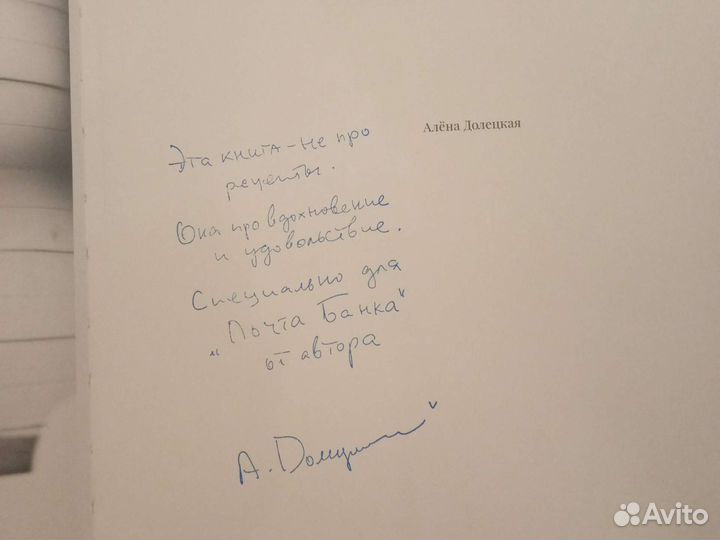 Алёна Долецкая
Эта книга - не про
рецепты.
Она про вдохновение
и удовольствие.
Специально для
"Почта Банка"
от автора
А.
Avito